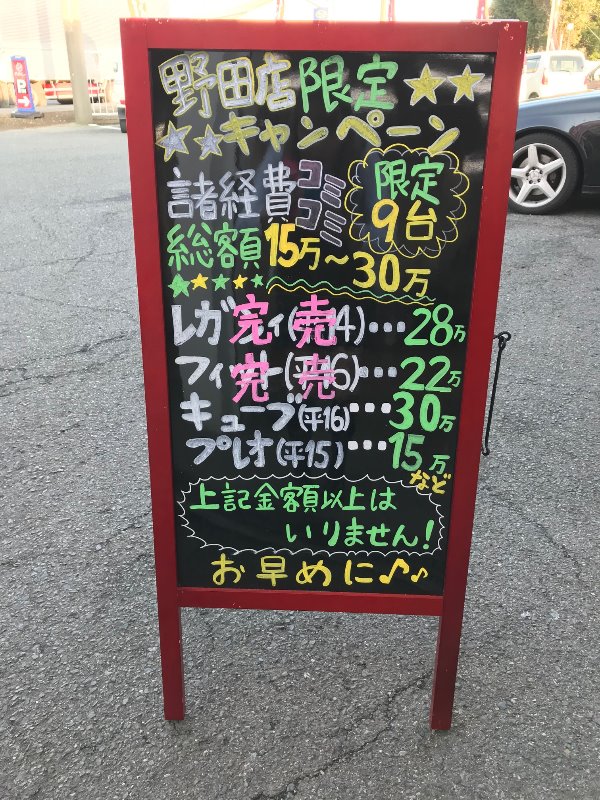 野田店限定
キャンペーン
諸経費コミコミ
限定
9台
総額15万〜30万
レガ完ィ(売4)…28万
フィ完ト(売6)…22万
キューブ(平16)…30万
プレオ(平15)…15万
など
上記金額以上は
いりません!
お早めに♪♪
P